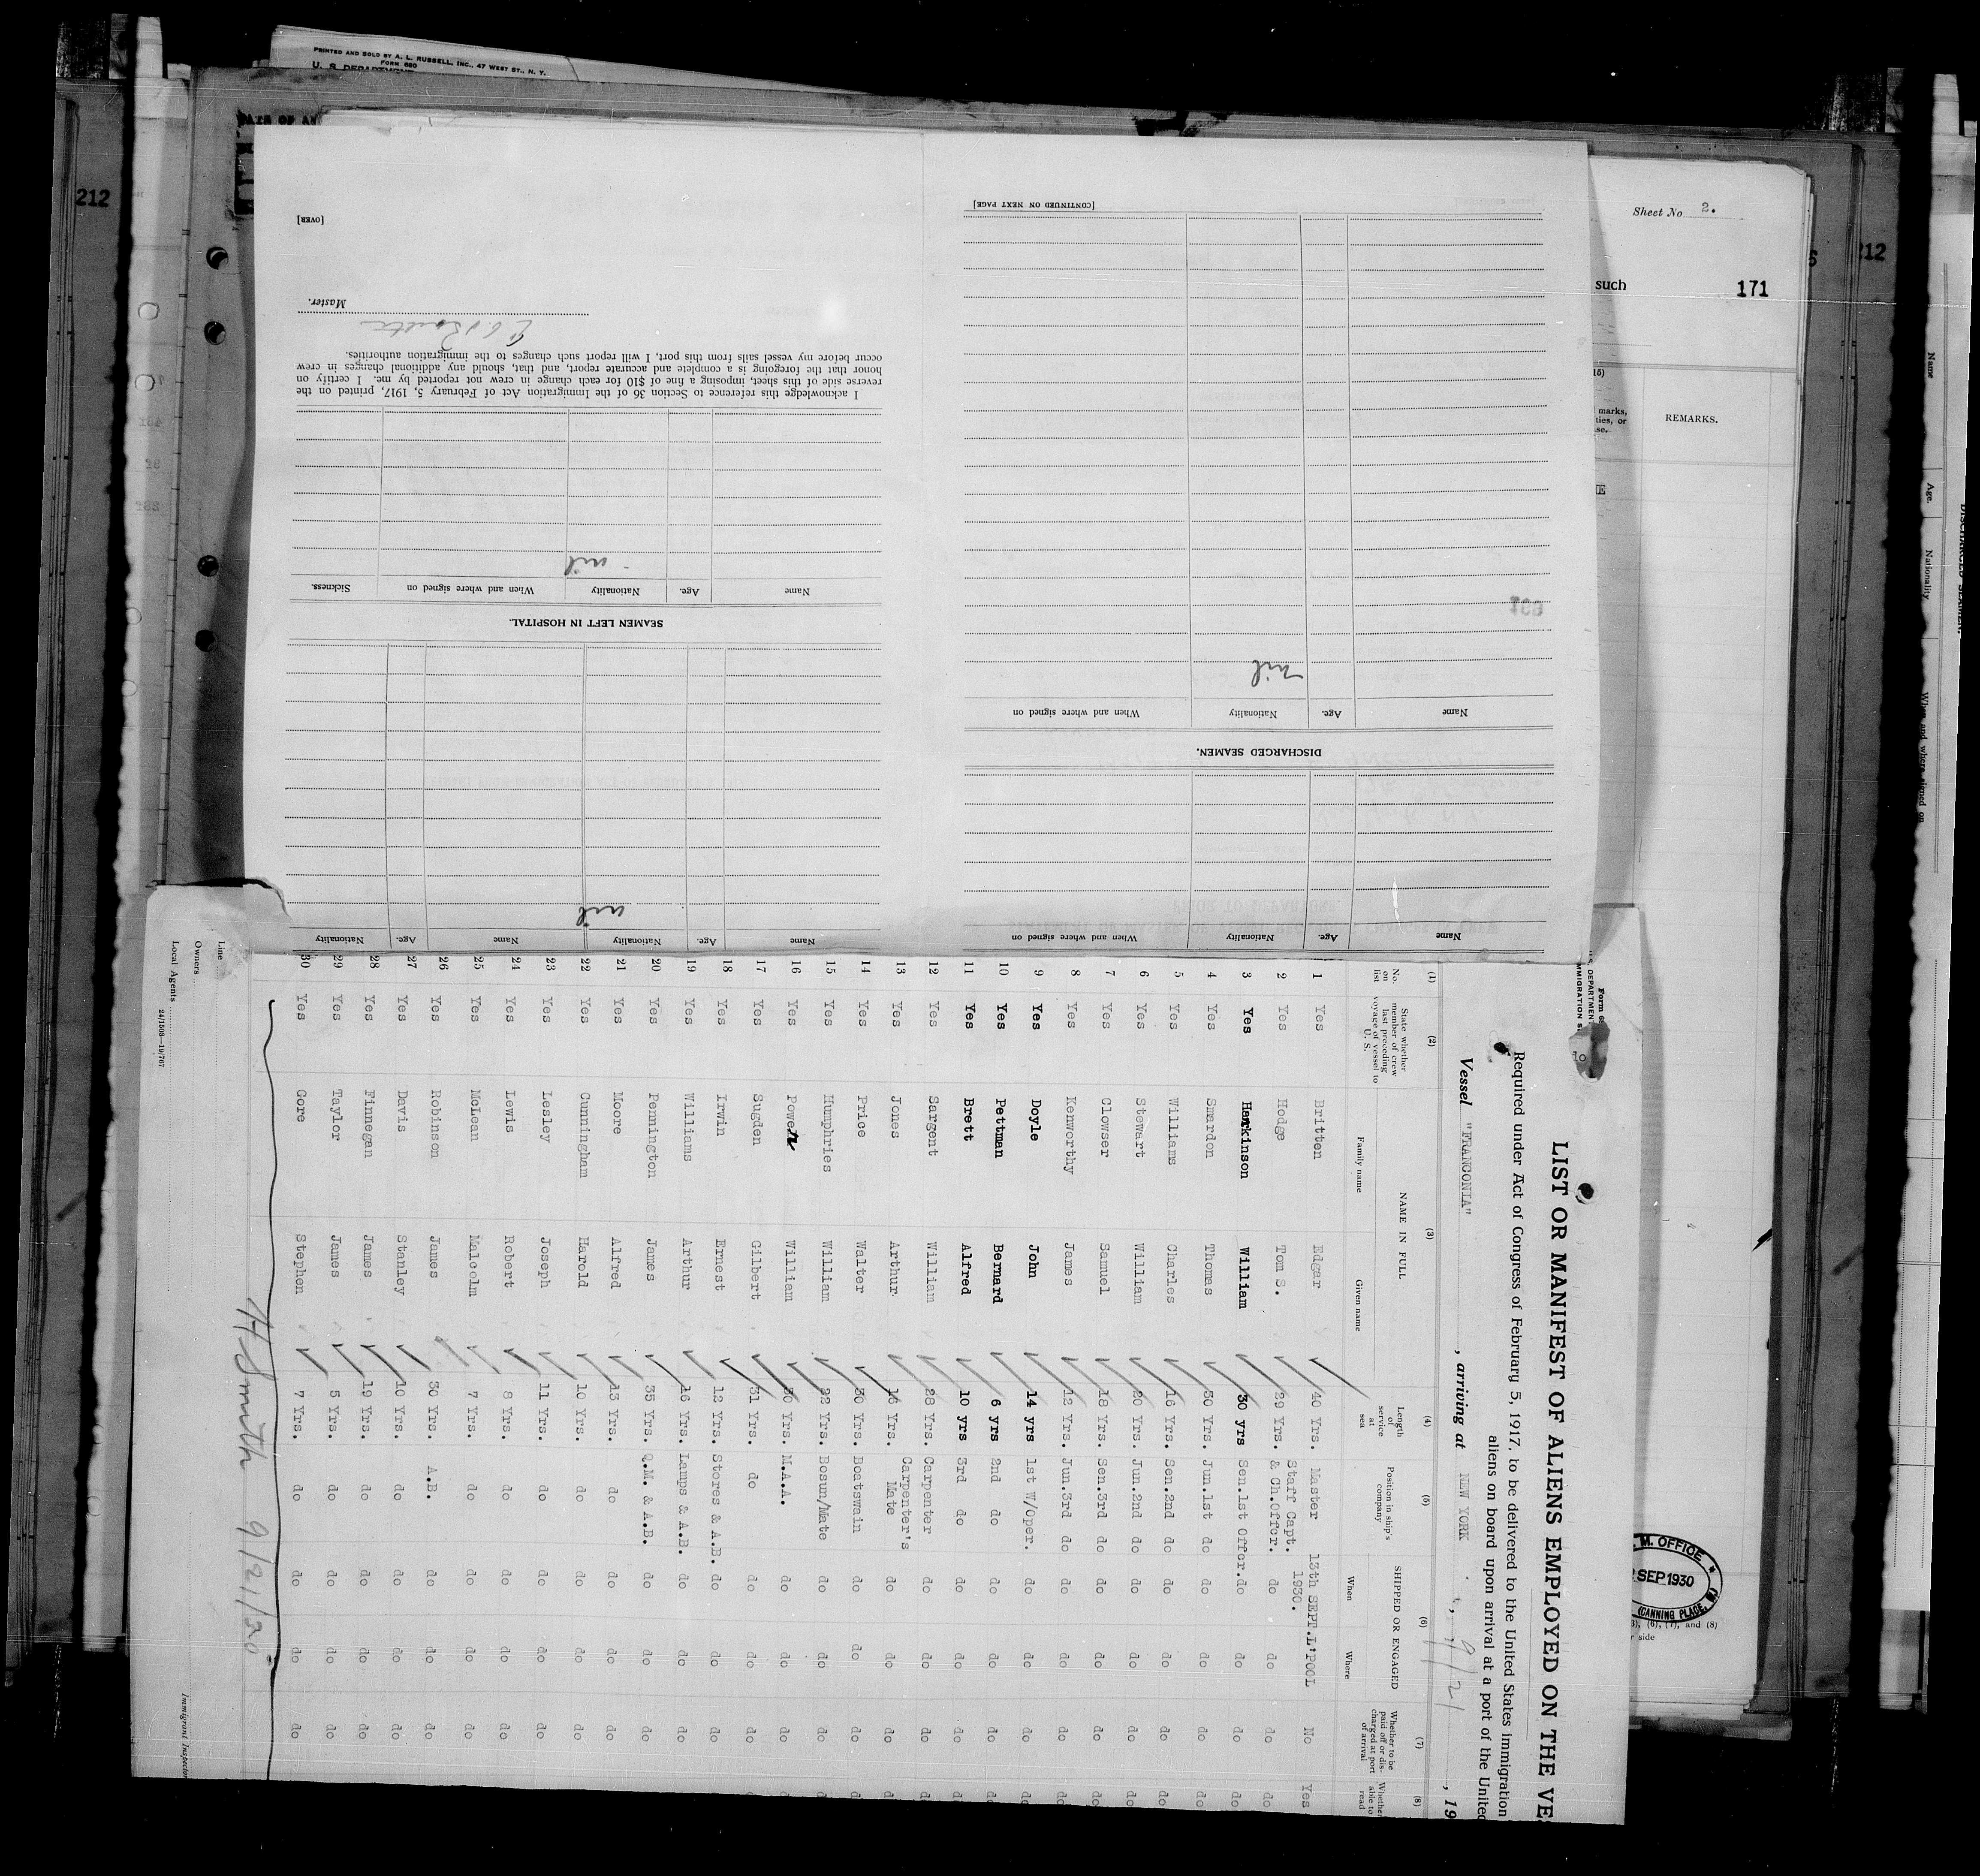 PRINTED AND SOLD BY A. L. RUSSELL, INC., 47 WEST ST., N. Y.
FORM 680
U. S. DEPARTMENT
212
212
Sheet No 2.
such
171
marks,
REMARKS.
[CONTINUED ON NEXT PAGE]
[OVER]
DISCHARGED SEAMEN.
Name Age. Nationality When and where signed on
nil
Name Age. Nationality When and where signed on
Name Age. Nationality Name Age. Nationality
nil
SEAMEN LEFT IN HOSPITAL.
Name Age. Nationality When and where signed on Sickness.
nil
I acknowledge this reference to Section 36 of the Immigration Act of February 5, 1917, printed on the
reverse side of this sheet, imposing a fine of $10 for each change in crew not reported by me. I certify on
honor that the foregoing is a complete and accurate report, and that, should any additional changes in crew
occur before my vessel sails from this port, I will report such changes to the immigration authorities.
Master.
LIST OR MANIFEST OF ALIENS EMPLOYED ON THE VE
Required under Act of Congress of February 5, 1917, to be delivered to the United States immigration
aliens on board upon arrival at a port of the United
Vessel "FRANCONIA" , arriving at NEW YORK , 9/21 , 19
(1) (2) (3) (4) (5) (6) (7) (8)
No. on list State whether member of crew last preceding voyage of vessel to U. S. NAME IN FULL Family name Given name Length of service at sea Position in ship's company SHIPPED OR ENGAGED When Where Whether to be paid off or discharged at port of arrival Whether able to read
1 Yes Britten Edgar 40 Yrs. Master 13th SEPT. 1930. L'POOL No Yes
2 Yes Hodge Tom S. 29 Yrs. Staff Capt. & Ch.Offcr. do do do do
3 Yes Harkinson William 30 yrs Sen.1st Offcr. do do do do
4 Yes Smardon Thomas 30 Yrs. Jun.1st do do do do do
5 Yes Williams Charles 16 Yrs. Sen.2nd do do do do do
6 Yes Stewart William 20 Yrs. Jun.2nd do do do do do
7 Yes Clowser Samuel 18 Yrs. Sen.3rd do do do do do
8 Yes Kenworthy James 12 Yrs. Jun.3rd do do do do do
9 Yes Doyle John 14 yrs 1st W/Oper. do do do do
10 Yes Pettman Bernard 6 yrs 2nd do do do do do
11 Yes Brett Alfred 10 yrs 3rd do do do do do
12 Yes Sargent William 28 Yrs. Carpenter do do do do
13 Yes Jones Arthur 16 Yrs. Carpenter's Mate do do do do
14 Yes Price Walter 30 Yrs. Boatswain do do do do
15 Yes Humphries William 22 Yrs. Bosun/Mate do do do do
16 Yes Power William 30 Yrs. M.A.A. do do do do
17 Yes Sugden Gilbert 31 Yrs. do do do do do
18 Yes Irwin Ernest 12 Yrs. Stores & A.B. do do do do
19 Yes Williams Arthur 16 Yrs. Lamps & A.B. do do do do
20 Yes Pennington James 35 Yrs. Q.M. & A.B. do do do do
21 Yes Moore Alfred 13 Yrs. do do do do do
22 Yes Cunningham Harold 10 Yrs. do do do do do
23 Yes Lesley Joseph 11 Yrs. do do do do do
24 Yes Lewis Robert 8 Yrs. do do do do do
25 Yes McLean Malcolm 7 Yrs. do do do do do
26 Yes Robinson James 30 Yrs. A.B. do do do do
27 Yes Davis Stanley 10 Yrs. do do do do do
28 Yes Finnegan James 19 Yrs. do do do do do
29 Yes Taylor James 5 Yrs. do do do do do
30 Yes Gore Stephen 7 Yrs. do do do do do
H Smith 9/21/30
Immigrant Inspector
Line
Owners
Local Agents
M. OFFICE
SEP 1930
(CANNING PLACE,
Name Age. Nationality When and where signed on
DISCHARGED SEAMEN.